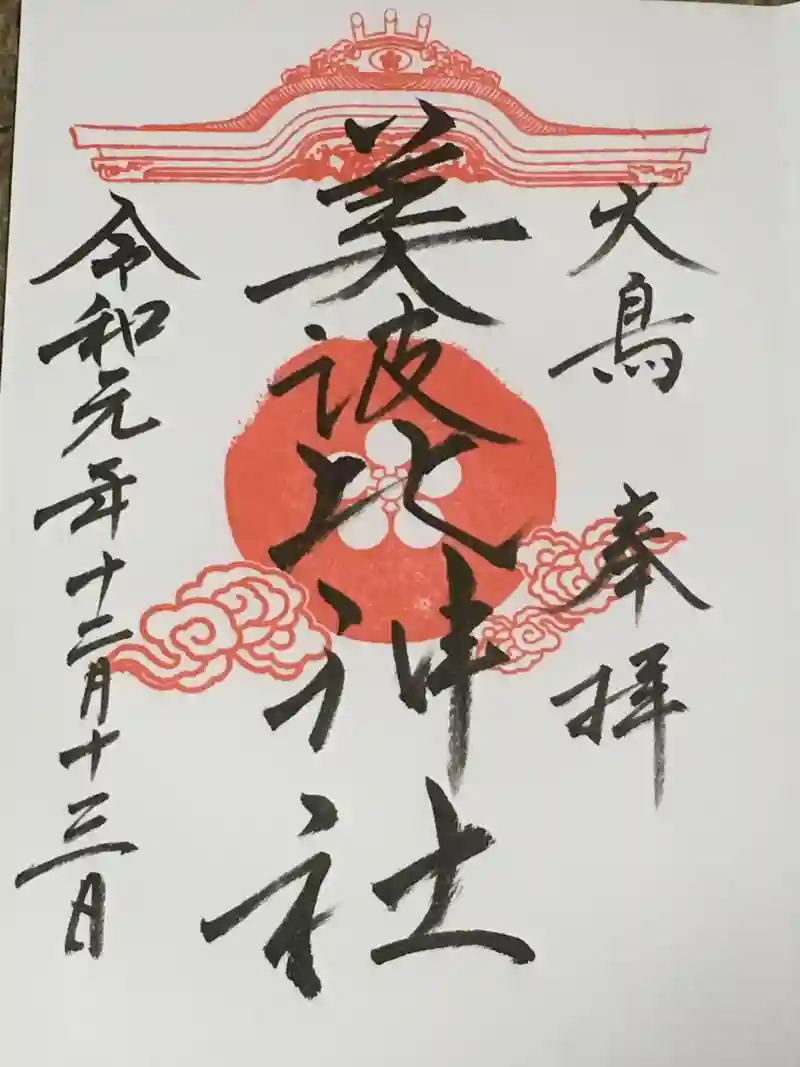 大鳥 奉拝
美波比神社
令和元年十二月十三日